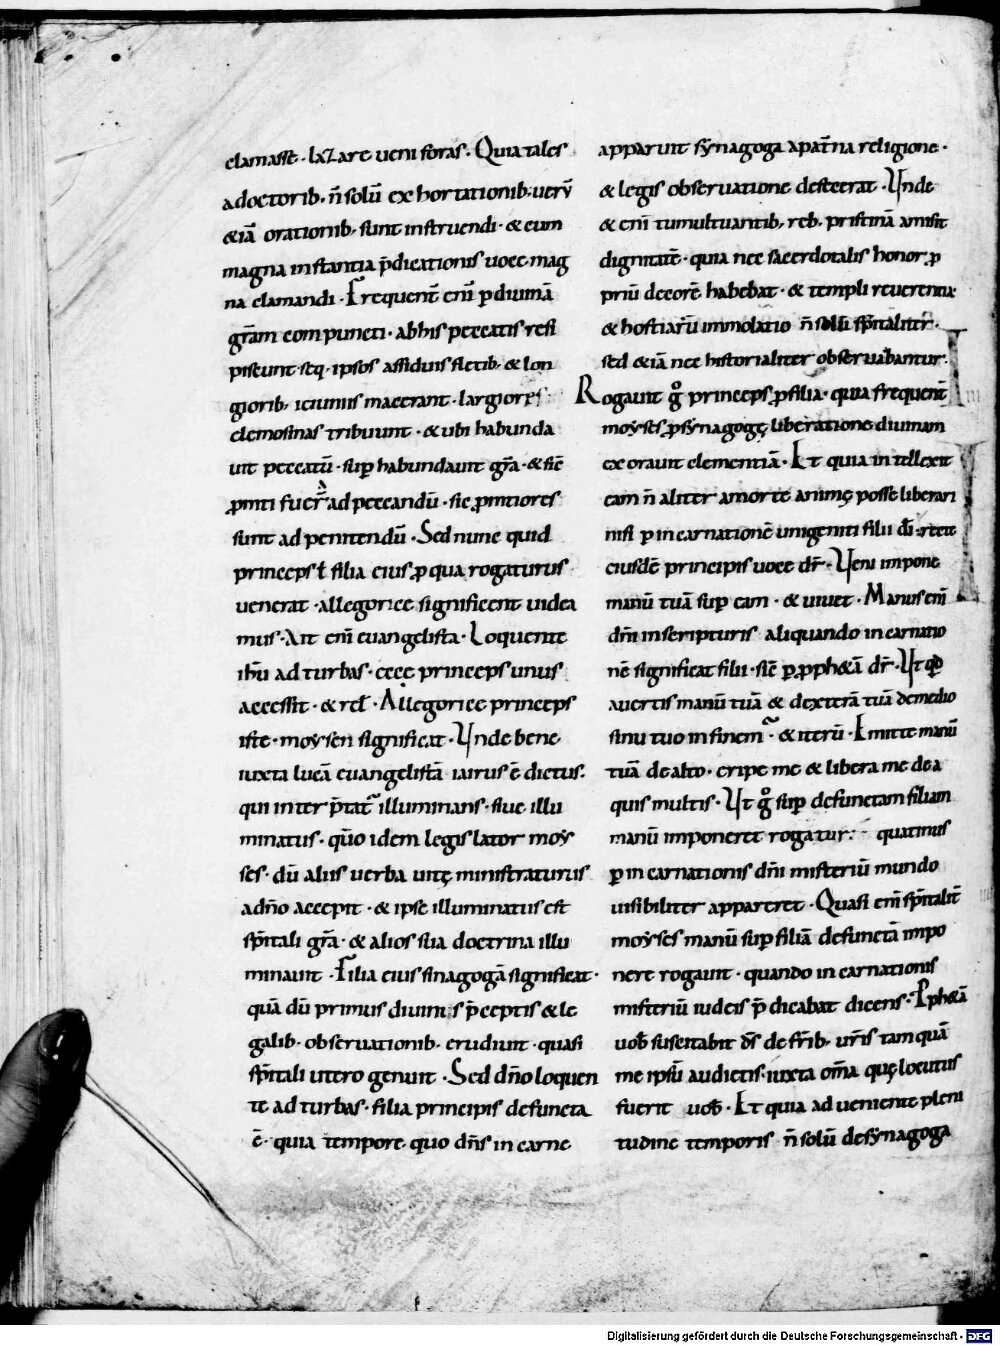 clamasse · lazare ueni foras · Quia tales
a doctorib; n̄ solū exhortationib; uerū
&iā orationib; sunt instruendi · & cum
magna instantia p̄dicationis uoce mag
na clamandi · Frequent̄ eni ꝑ diuinā
gr̄am compuncti · ab his peccatis resi
piscunt seq · ipsos assiduis fletib; & lon
giorib; ieiuniis macerant · largiores
elemosinas tribuunt · & ubi habunda
uit peccatū · suꝑ habundauit gr̄a · & sic̄
ꝓmti fuer̄ ad peccandū · sic ꝓmtiores
sunt ad penitendū · Sed nunc quid
princeps ł filia eius ꝓ qua rogaturus
uenerat · allegorice significent uidea
mus · Ait eni euangelista · Loquente
ihū ad turbas · ecce princeps unus
accessit · & rel̄ · Allegorice princeps
iste · moysen significat · Unde bene
iuxta lucā euangelistā iairus ē dictus ·
qui interp̄tat̄ illuminans · siue illu
minatus · quō idem legislator moy
ses · dū aliis uerba uitę ministraturus
a dn̄o accepit · & ipse illuminatus est
sp̄itali gr̄a · & alios sua doctrina illu
minauit · Filia eius sinagogā significat ·
quā dū primus diuinis p̄ceptis & le
galib; obseruationib; erudiuit · quasi
sp̄itali utero genuit · Sed dn̄o loquen
te ad turbas · filia principis defuncta
ē · quia tempore quo dn̄s in carne
apparuit synagoga a pat̄na religione ·
& legis obseruatione defecerat · Unde
& eni tumultuantib; reb; pristinā amisit
dignitatē · quia nec sacerdotalis honor ꝓ
priū decorē habebat · & templi reuerentia
& hostiarū immolatio n̄ solū sp̄italiter ·
sed &iā nec historialiter obseruabantur ·
Rogauit g° princeps ꝓ filia · quia frequent̄
moyses ꝓ synagogę liberatione diuinam
exorauit clementiā · Et quia intellexit
eam n̄ aliter a morte animę posse liberari
nisi ꝑ incarnationē unigeniti filii dī · recte
eiusdē principis uoce dr̄ · Ueni impone
manū tuā suꝑ eam · & uiuet · Manus eni
dn̄i in scripturis aliquando incarnatio
nē significat filii · sic̄ ꝑ ꝓph&ā dr̄ · Ut qd
auertis manū tuā & dexterā tuā de medio
sinu tuo in finem · & iterū · Emitte manū
tuā de alto · eripe me & libera me de a
quis multis · Ut g° suꝑ defunctam filiam
manū imponeret rogatur · quatinus
ꝑ incarnationis dn̄i misteriū mundo
uisibiliter appareret · Quasi eni sp̄italit̄
moyses manū suꝑ filiā defunctā impo
nere rogauit · quando incarnationis
misteriū iudeis p̄dicabat dicens · Pph&ā
uob̄ suscitabit ds̄ de fr̄ib; ur̄is tamquā
me ipsū audietis · iuxta om̄a quę locutus
fuerit uob̄ · Et quia adueniente pleni
tudine temporis n̄ solū de synagoga
Digitalisierung gefördert durch die Deutsche Forschungsgemeinschaft - DFG